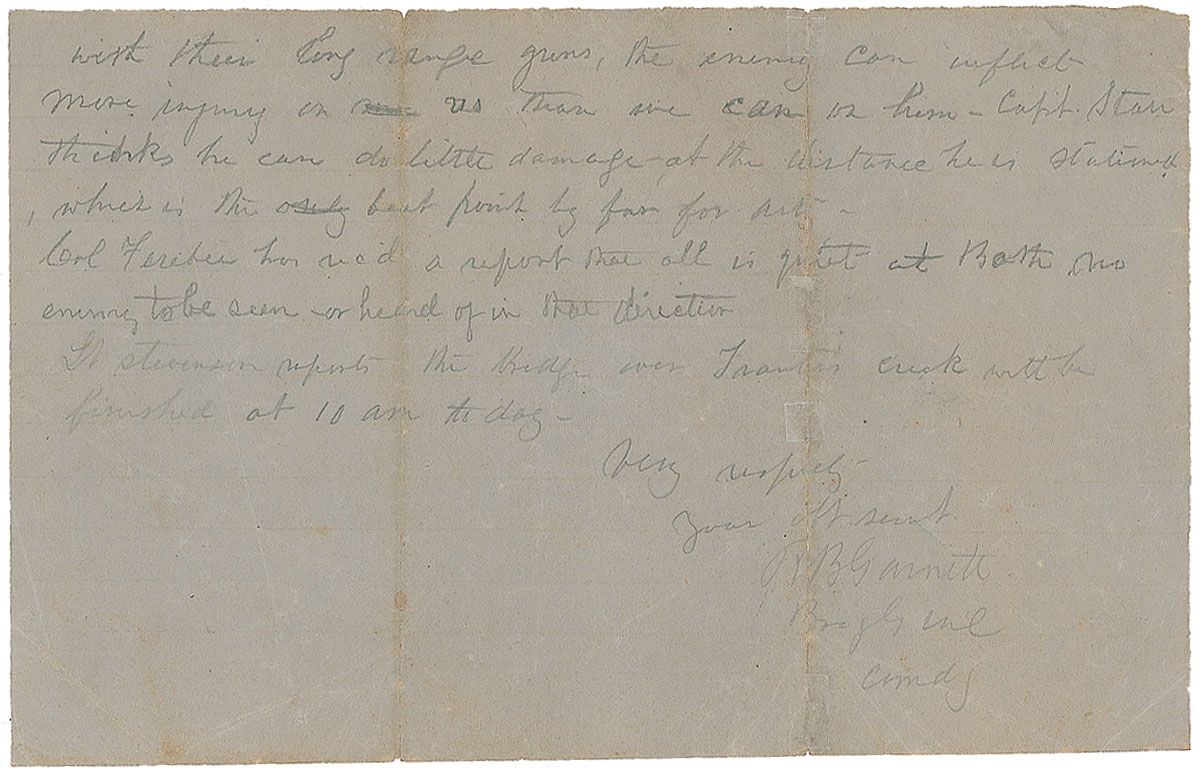 with their long range guns, the enemy can inflict
more injury on us than we can on him - Capt. Starr
thinks he can do little damage at the distance he is stationed
, which is the only best point by far for arty -
Col Ferebee has rec'd a report that all is quiet at Bath no
enemy to be seen or heard of in that direction
Lt Stevenson reports the bridge over Tranters creek will be
finished at 10 am to day -
Very respectly
your obt servt
R B Garnett.
Brig Genl
comdg